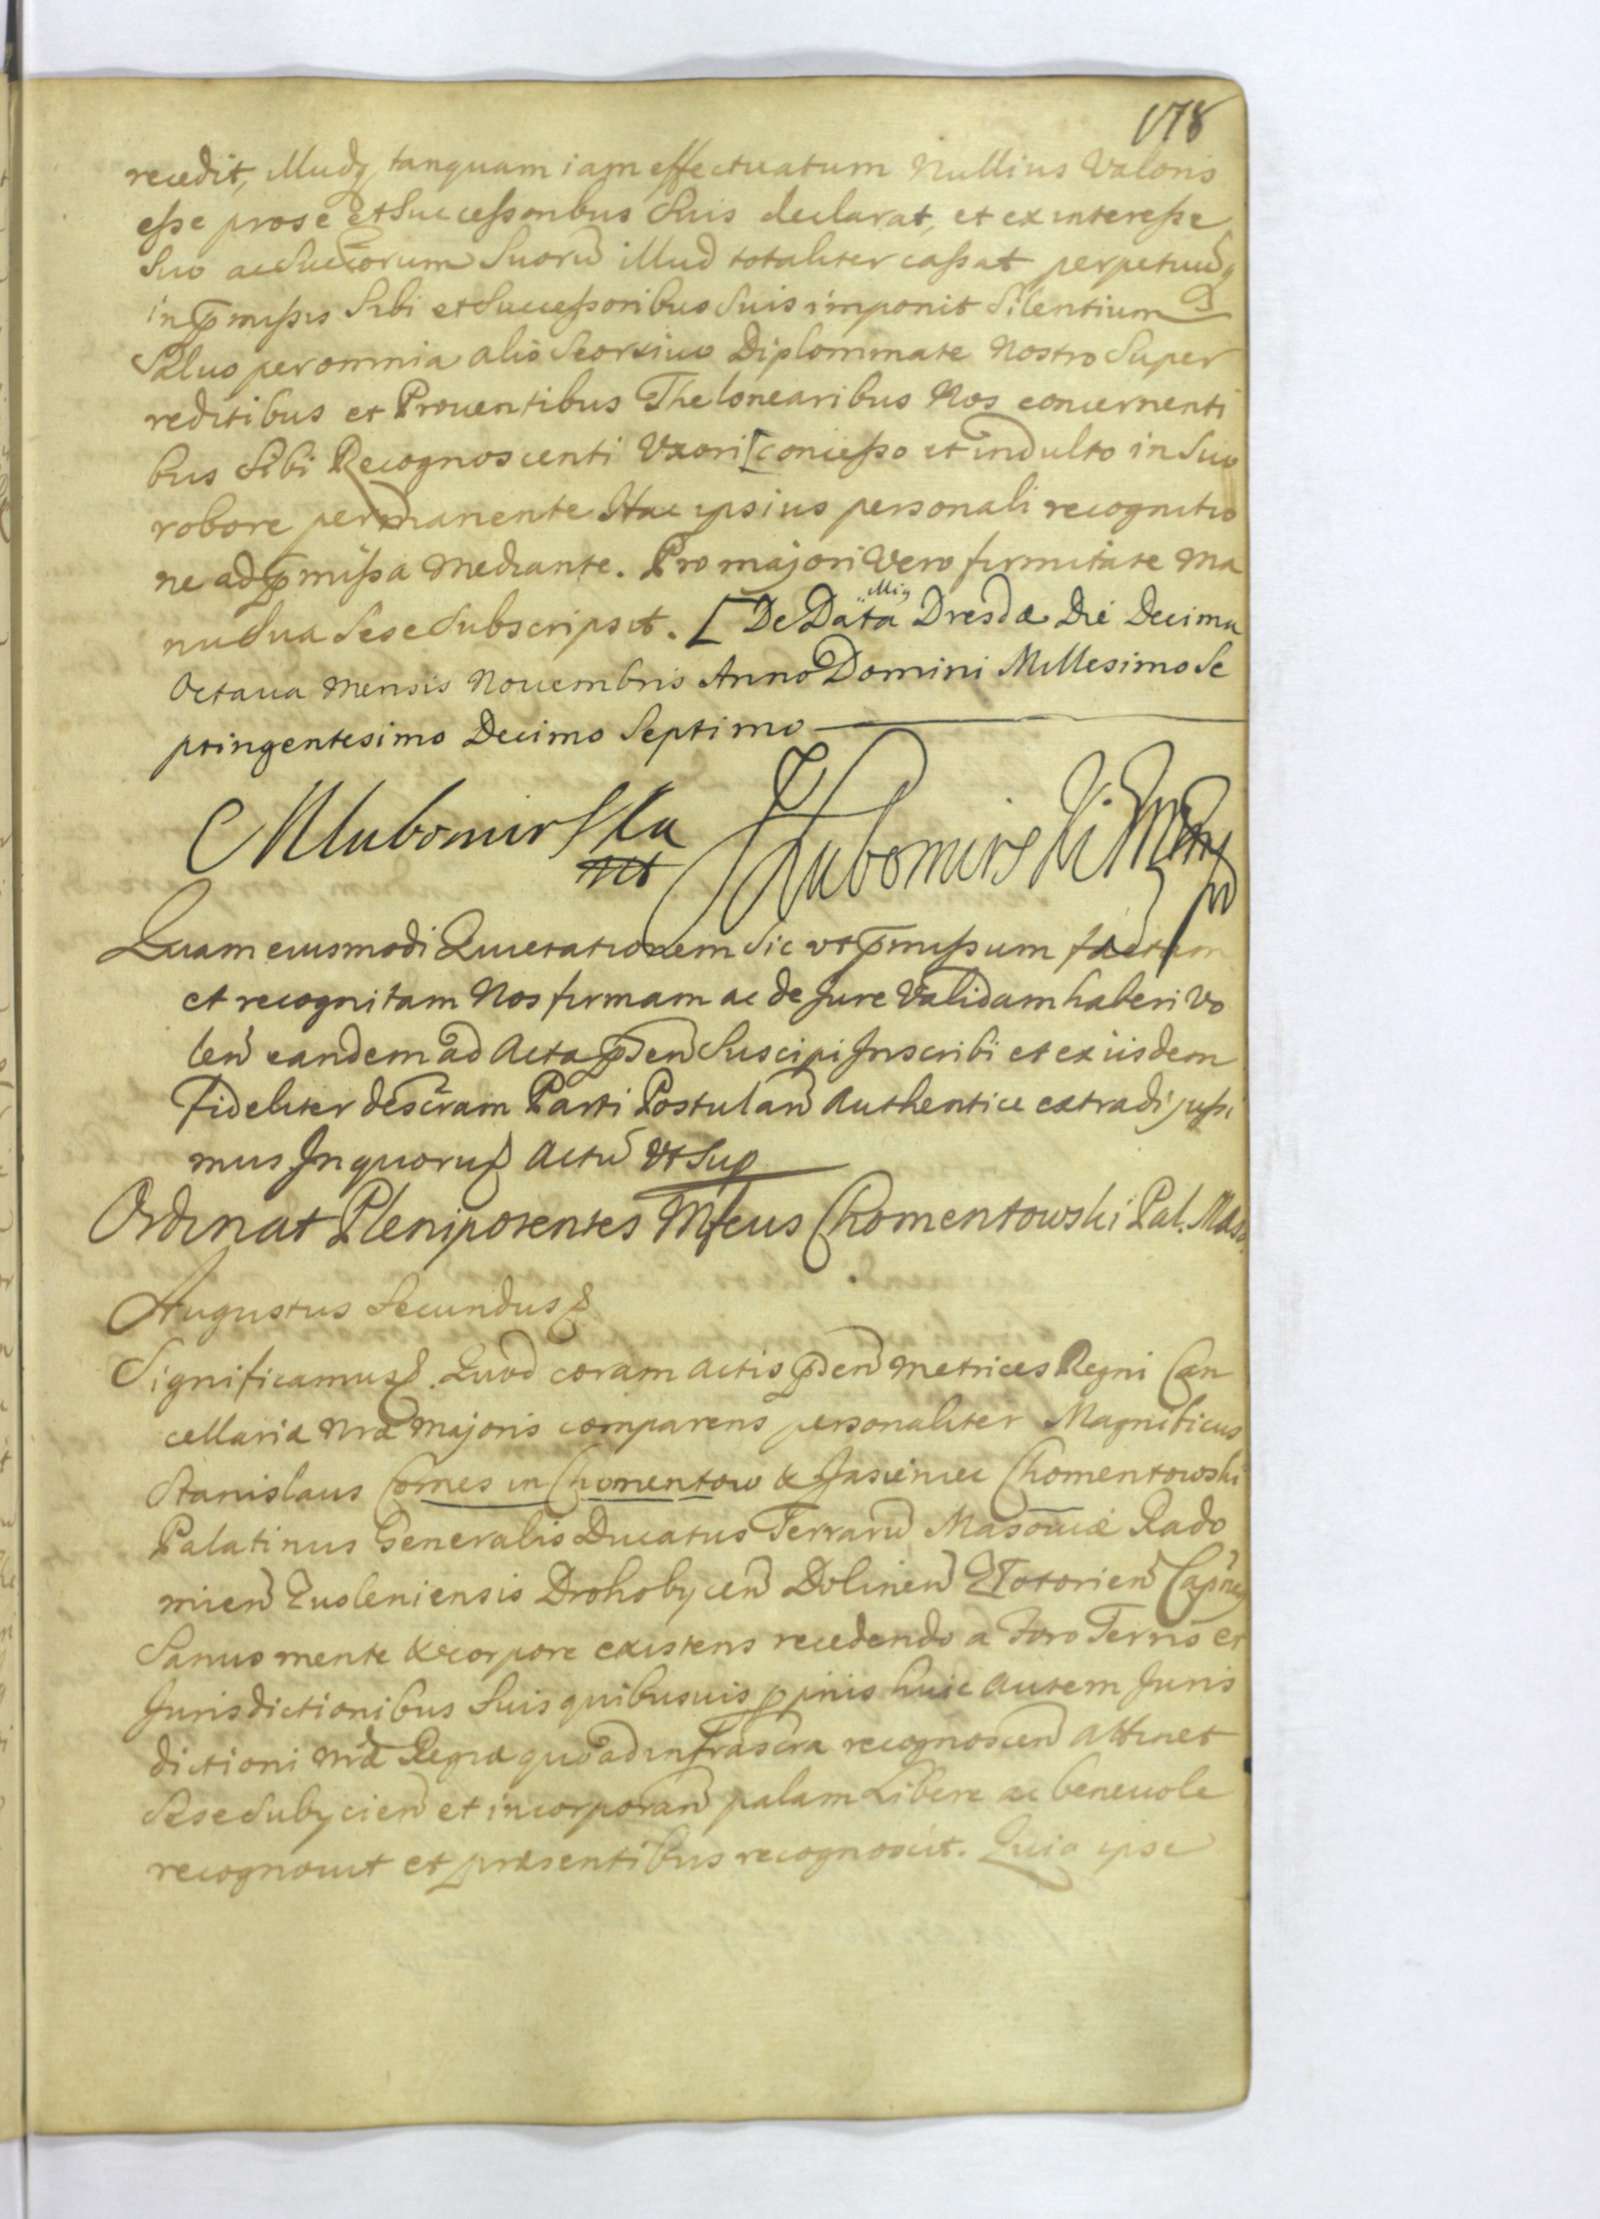 178
recedit, Illudq tanquam iam effectuatum Nullius Valoris
esse pro se et Successoribus Suis declarat, et ex interesse
Suo ac Succorum Suorũ illud totaliter cassat perpetuũq
in pmissis Sibi et Successoribus Suis imponit Silentium
Saluo per omnia alio Seorsiuo Diplommate Nostro Super
reditibus et Prouentibus Thelonearibus Nos concernenti
bus Sibi Recognoscenti Uxori [concesso et indulto in Suo
robore permanente Hac ipsius personali recognitio
ne ad pmissa mediante. Pro majori Vero firmitate Ma
nu Sua Sese Subscripsit. [De Data Dresdæ Die Decima
Octaua Mensis Nouembris Anno Domini Millesimo Se
ptingentesimo Decimo Septimo
MLubomirSka
Lubomirski
Quam eiusmodi Quietationem Sic ut pmissum factam
et recognitam Nos firmam ac de Jure Validam haberi Vo
leñ eandem ad Acta pdeñ Suscipi Inscribi et ex iisdem
Fideliter descram Parti Postulañ Authentice extradi jussi
mus In quorum Actũ Ut Sup
Ordinat Plenipotentes Mfcus Chomentowski Pal. Maso.
Augustus Secundus
Significamus. Quod coram Actis pdeñ Metrices Regni Can
cellariæ Nræ Majoris comparens personaliter Magnificus
Stanislaus Comes in Chomentow & Jasieniec Chomentowski
Palatinus Generalis Ducatus Terrarũ Masouiæ Rado
mieñ Zusleniensis Drohobyceñ Dolineñ Capneus
Sanus mente & corpore existens recedendo a Foro Terris et
Jurisdictionibus Suis quibusuis ppriis huic autem Juris
dictioni Nræ Regiæ quo ad infrascra recognosceñ attinet
Sese Subycieñ et incorporañ palam Libere ac beneuole
recognouit et præsentibus recognoscit. Quia ipse